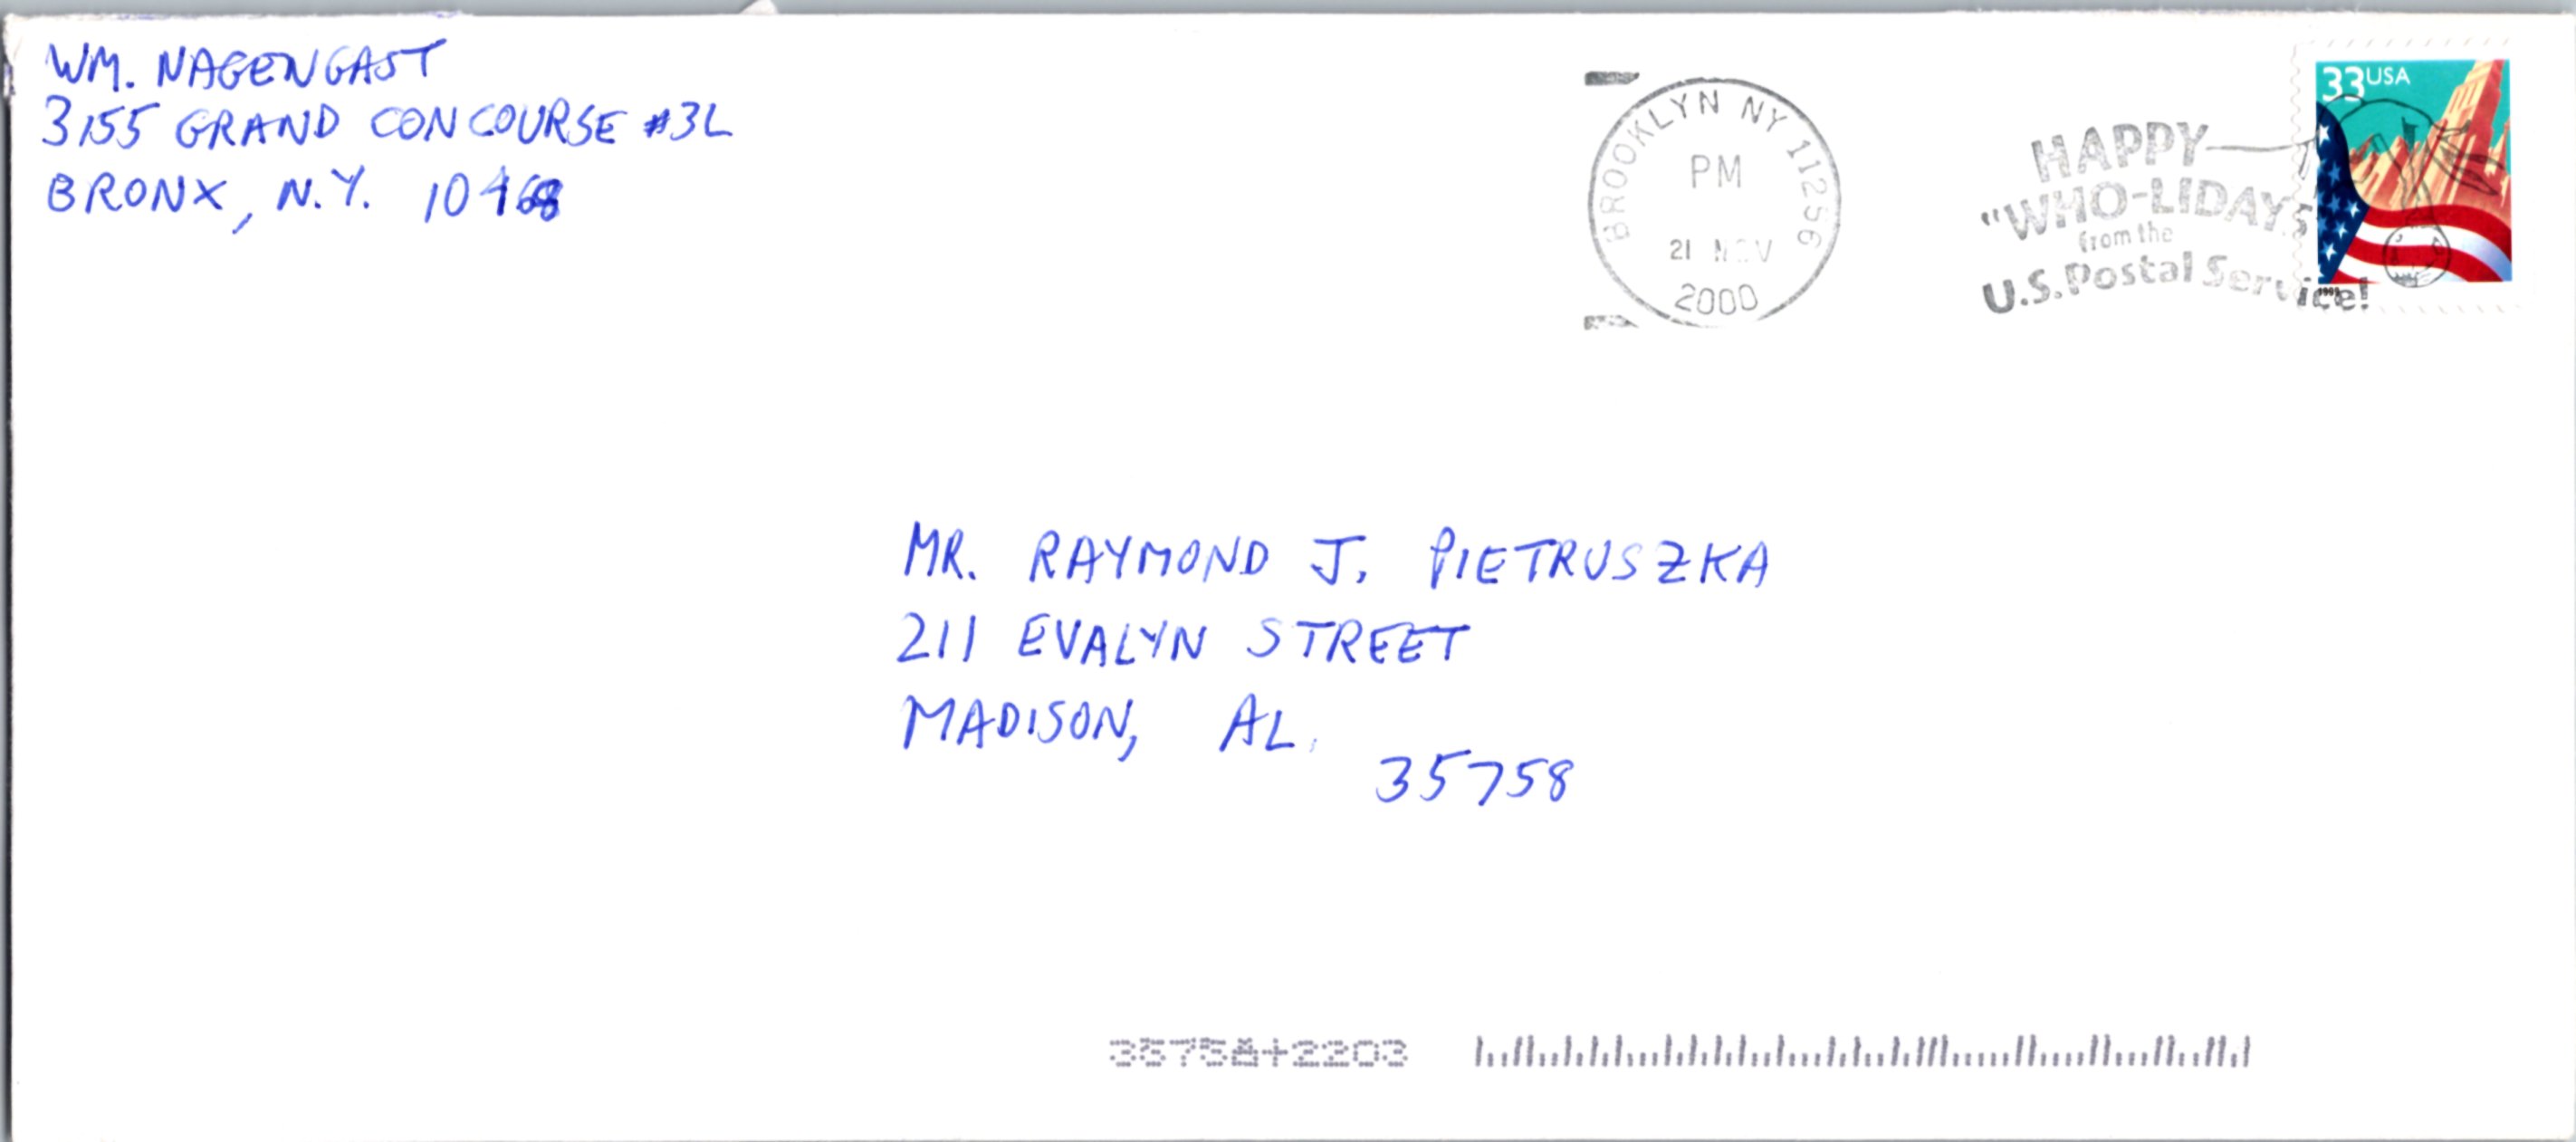 WM. NAGENGAST
3155 GRAND CONCOURSE #3L
BRONX, N.Y. 10468
BROOKLYN NY 11256
PM
21 NOV
2000
HAPPY
"WHO-LIDAYS
from the
U.S. Postal Service!
33 USA
1999
MR. RAYMOND J. PIETRUSZKA
211 EVALYN STREET
MADISON, AL.
35758
35758+2203